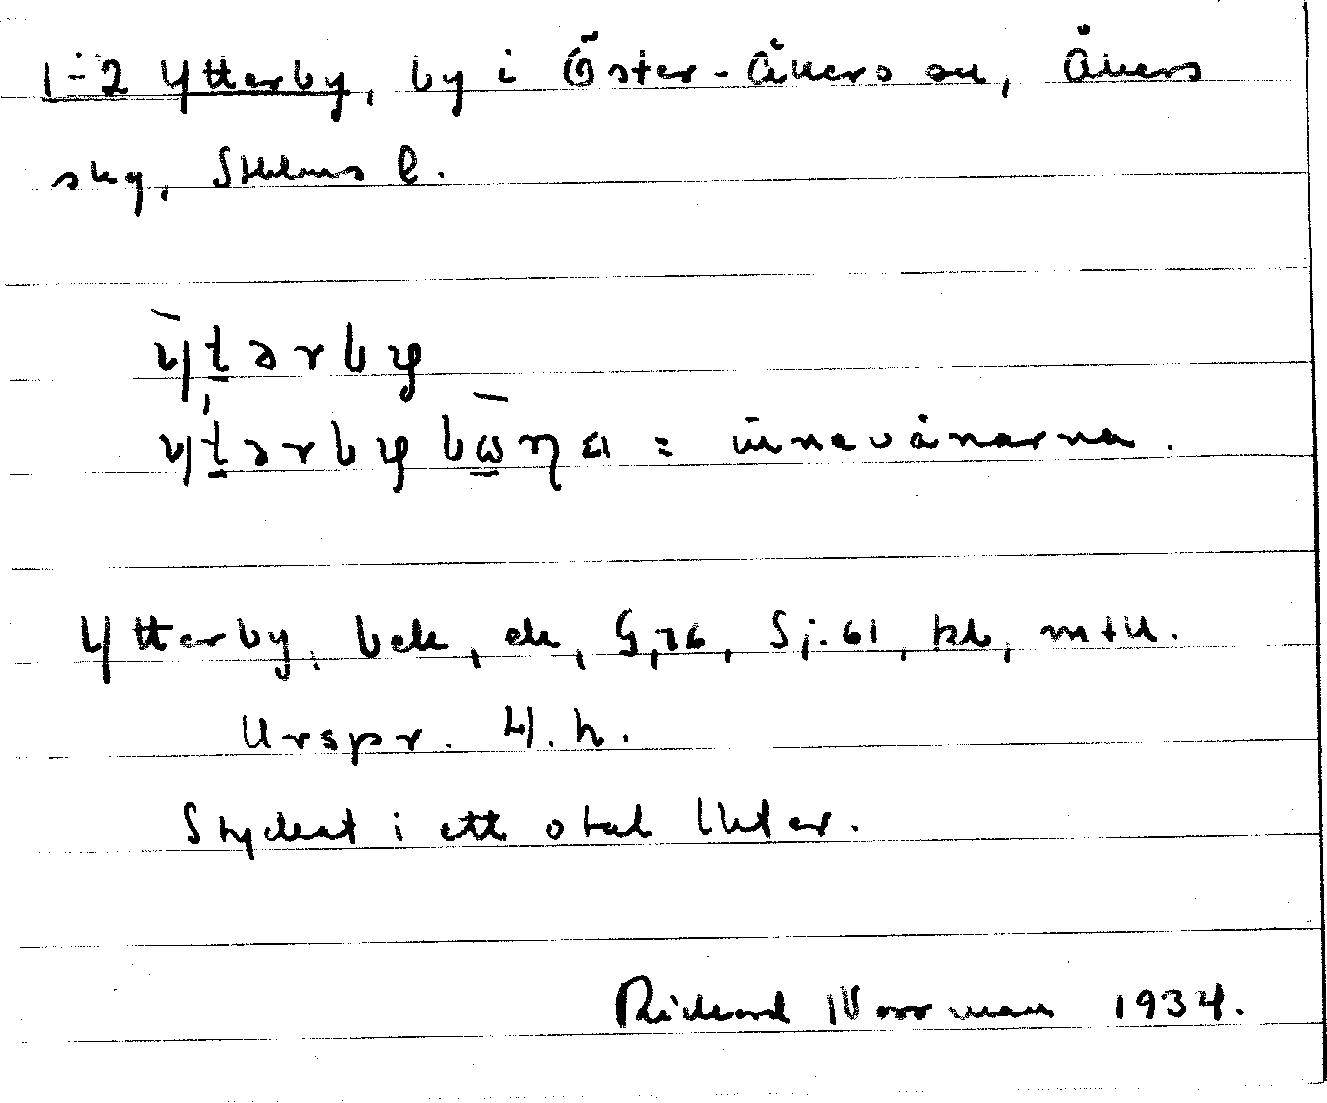 1-2 Ytterby, by i Öster-Åkers sn, Åkers
skg, Sthlms l.
y̅t̲ərby
yt̲ərbybω̲ηa = innevånarna.
Ytterby, bek, ek, G, 76, Sj. 61, kb, mtll.
Urspr. 4. h.
Styckat i ett otal lhter.
Rickard Norrman 1934.